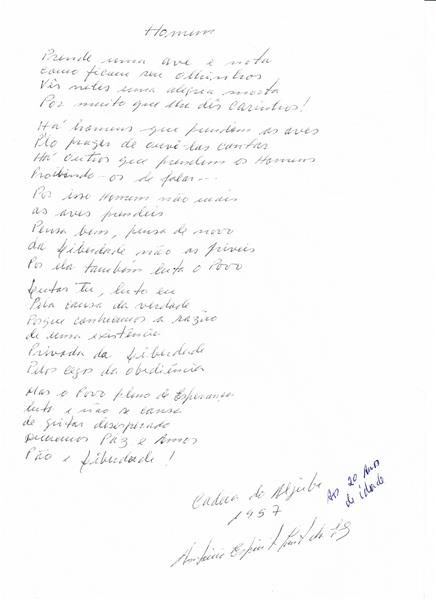 Homem
Prende uma ave e nota
como ficam seus olhinhos
Vês neles uma alegria morta
Por muito que lhe dês carinhos!
Há homens que prendem as aves
Plo prazer de ouvi-las cantar
Há outros que prendem os Homens
Proibindo-os de falar...
Por isso Homem não mais
as aves prendeis
Pensa bem, pensa de novo
da Liberdade não as priveis
Por ela também luta o Povo
Lutas Tu, luto eu
Pela causa da verdade
Porque conhecemos a razão
de uma existência
Privada da Liberdade
Pelos cegos da obediência
Mas o Povo pleno de Esperança
luta e não se cansa
de gritar desesperado
Queremos Paz e Amor
Pão e Liberdade!
Cadeia do Aljube
1957
Aos 20 Anos
de idade
António